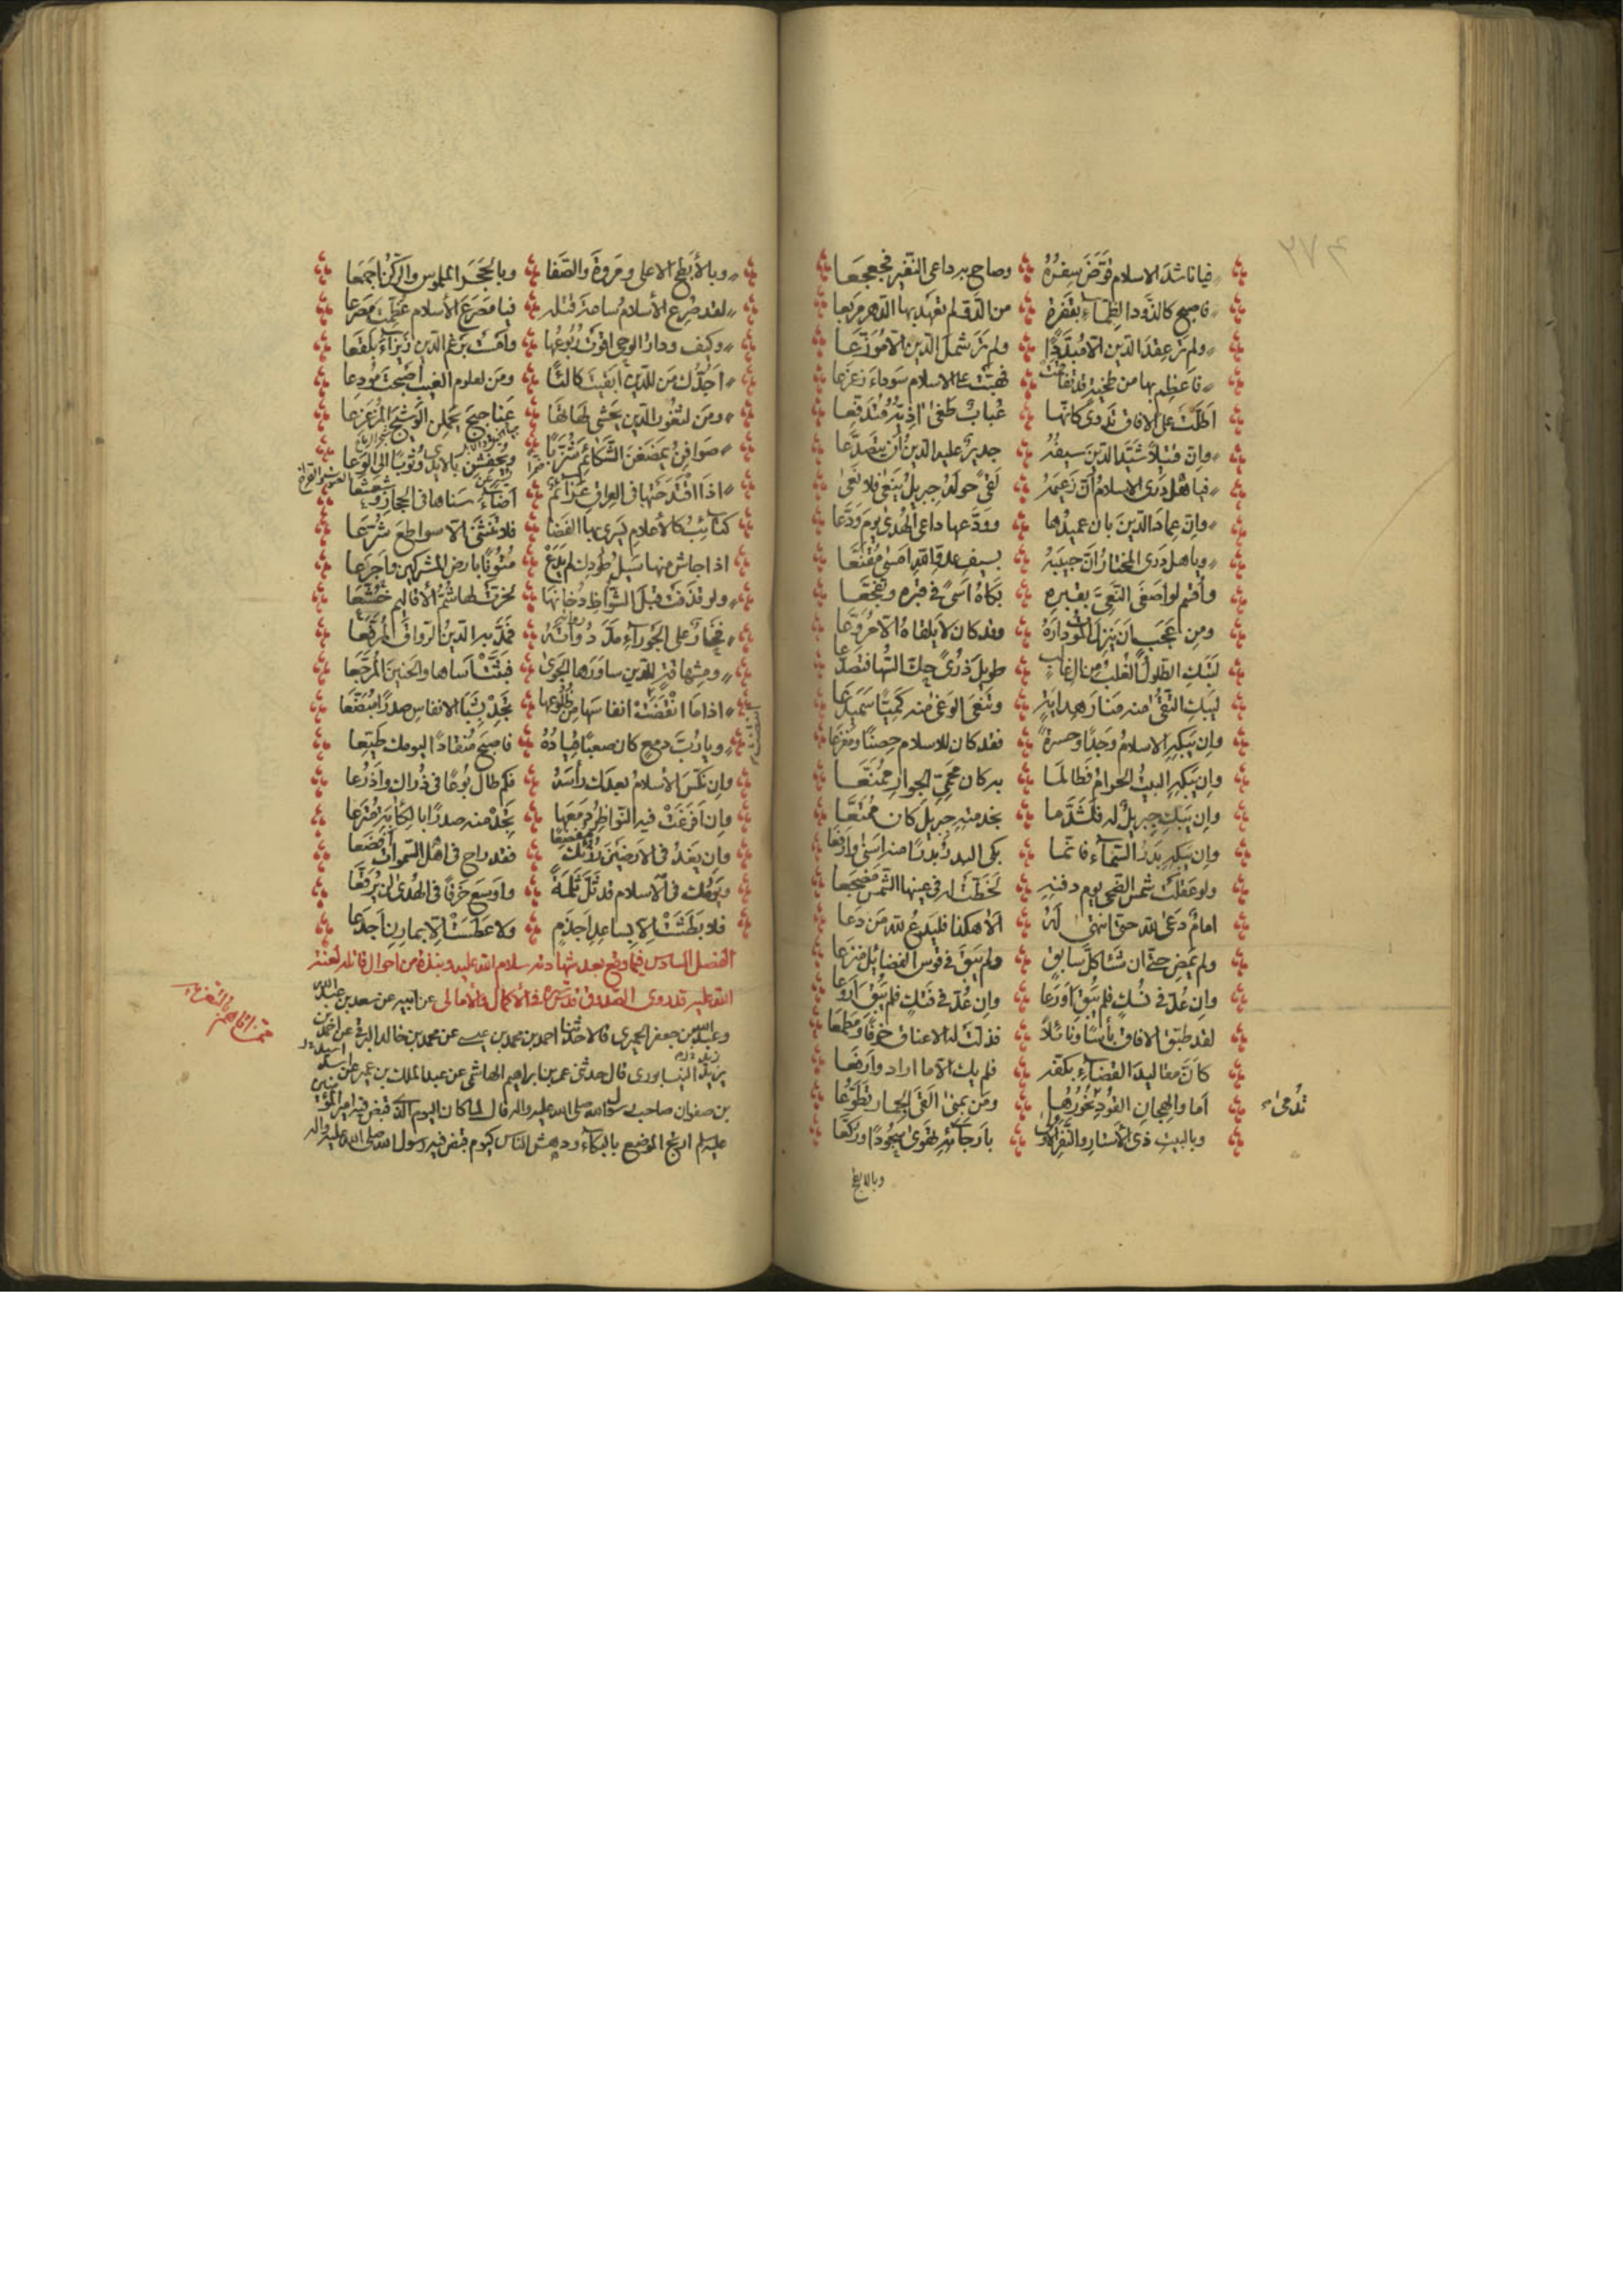 فيا ناشد الاسلام قوّض سفره وصاح به داعى النفير فجعجعا
فاصبح كالذود الظماء بقفرة من الدو لم تعهد بها الدهر مربعا
ولم تر عقد الدين الا مبددا ولم تر شمل الدين الا موزعا
فاعظم بها من طخية قد تفاقمت فهبت على الاسلام سوداء زعزعا
اطلت على الافاق تدوى كانها عباب طغى اذيه فتدفعا
وان قتيلا شيد الدين سيفه جدير عليه الدين ان يتصدعا
فيا هل درى الاسلام ان زعيمه لقى حوله جبريل ينعى فلا نعى
وان عماد الدين بان عميدها وودعها داعى الهدى يوم ودعا
ويا هل درى المختار ان حبيبه بسيف عدو الله امسى مقنعا
واقسم لو اصغى النعي بقبره بكاه اسى فى قبره وتفجعا
ومن عجب ان ينزل الموت داره وقد كان لا يلقاه الا مروعا
لتبك الطلول الغلب من ال غالب طويل ذرى حك السها فتصدعا
ليبك التقى منه منار هداية وتنعى الوغى منه كميا سميدعا
وان يبكه الاسلام وجدا وحسرة فقد كان للاسلام حصنا ومفزعا
وان يبكه البيت الحرام فطالما به كان محمى الجوار ممنعا
وان يبك جبريل له فلشد ما بخدمته جبريل كان ممتعا
وان يبكه بدر السماء فانما بكى البدر بدرا منه اسنى وارفعا
ولو عقلت شمس الضحى يوم دفنه لخطت له فى عينها الشمس مضجعا
امام دعى لله حتى انتهى له الا هكذا فليدع لله من دعا
ولم يمض حتى ان شئا كل سابق ولم يبق فى قوس الفضائل منزعا
وان عد فى نسك فلم يبق اورعا وان عد فى فتك فلم يبق اروعا
لقد طبق الافاق بأسا ونائلا فذلت له الاعناق خوفا ومطمعا
كان مقاليد القضاء بكفه فلم يك الا ما اراد وازمعا
اما والهجان القود تدمى نحورها ومن بمنى القى الجمار تطوعا
وبالبيت ذى الاستار والنفر الاولى بارجائه تقوى سجودا وركعا
وبالابطح
وبالأبطح الاعلى ومروة والصفا وبالحجر الملموس والركن اجمعا
لقد صرع الأسلام ساعة قتله فيا مصرع الأسلام عظمت مصرعا
وكيف ودار الوحى اقوت ربوعها وامست برغم الدين زيزاء بلقعا
اجدك من للدين ابقيت كالئا ومن لعلوم الغيب اصبحت مودعا
ومن لثغور الدين يحشى لهاتها عناجيج يحملن الوشيج المزعزعا
صوافن يمضغن الشكائم شزبا
اذا اقتدحتها فى العراق عزائم اضاء سناها فى الحجاز وشعشعا
كتائب كالاعلام يسرى بها القضا فلا تغشى الا سواطع شرعا
اذا جاش منها سيل طود لم يدع متونا بارض المشركين واجرعا
ولو قذفت قبل الشواظ دخانها لخرت لها شم الأقاليم خشعا
فخار على الجوزاء مد رواقه فمد به الدين الرواق المرفعا
اذا ما انقضت انفاسها من ضلوعها تجد بشبا الانفاس صدرا مبضعا
ويا رب دمع كان صعبا قياده فاصبح منقادا ليومك طيعا
وان نكس الأسلام بعدك رأسه فكم طال بوعا فى ذراك واذرعا
وان افرغت فيه النواظر دمعها تجد منه صدرا بالكآبة مترعا
وان يغد فى الارضين رزئك مفضعا فقد راح فى اهل السموات افضعا
ويومك فى الاسلام قد ثل ثلمة واوسع خرقا فى الهدى لن يرقعا
فلا بطشت الا بساعد اجذم ولا عطست الا بمارن اجدعا
الفصل السادس فيما وقع بعد شهادته سلام الله عليه ونبذة من احوال قاتله لعنة
الله عليه قد روى الصدوق قدس سره فى الاكمال والأمالى عن ابيه عن سعد بن عبد الله
وعبد الله بن جعفر الحميرى قالا حدثنا احمد بن محمد بن عيسى عن محمد بن خالد البرقى عن احمد بن
زيد النيسابورى قال حدثنى عمر بن ابراهيم الهاشمى عن عبد الملك بن عمير عن اسيد
بن صفوان صاحب رسول الله صلى الله عليه واله قال لما كان اليوم الذى قبض فيه امير المؤمنين
عليه السلام ارتج الموضع بالبكاء ودهش الناس كيوم قبض فيه رسول الله صلى الله عليه واله